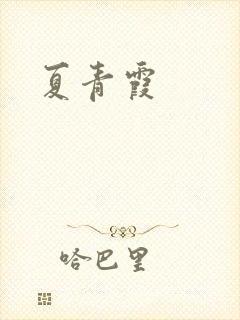 夏青霞
哈巴里